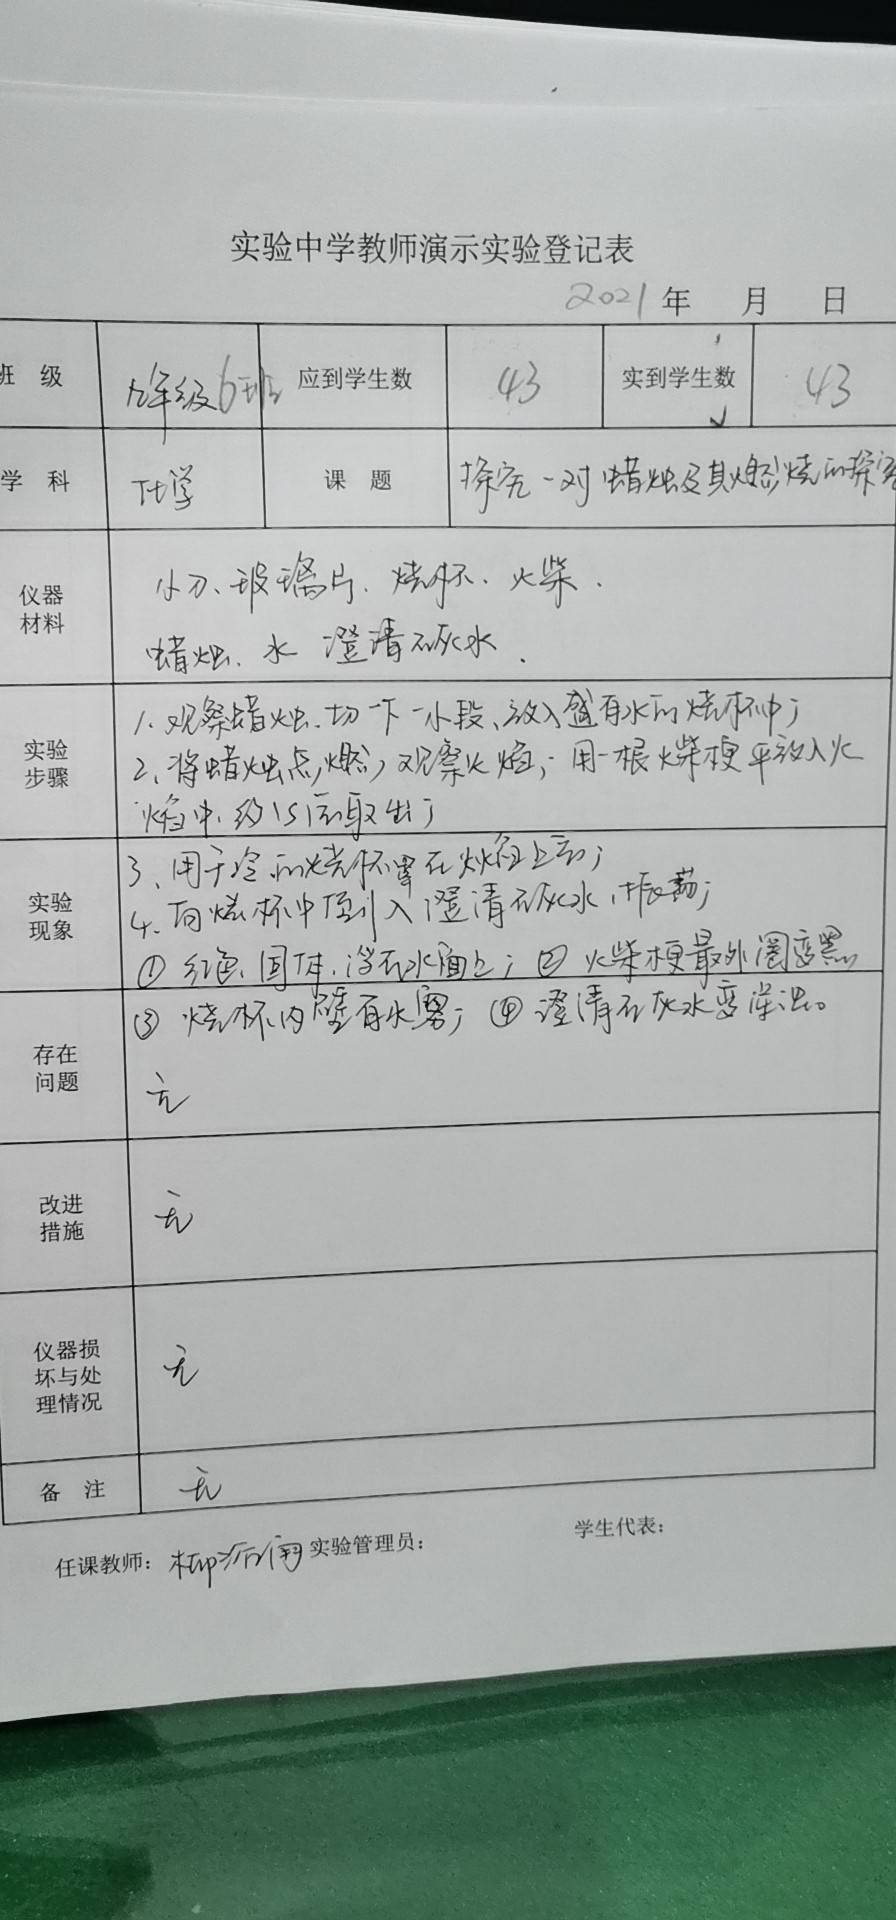 实验中学教师演示实验登记表
2021 年 月 日
班 级 九年级6班 应到学生数 43 实到学生数 43
学 科 化学 课 题 探究一对蜡烛及其燃烧的探究
仪器材料
小刀、玻璃片、烧杯、火柴.
蜡烛、水 澄清石灰水.
实验步骤
1、观察蜡烛、切下一小段、放入盛有水的烧杯中;
2、将蜡烛点燃,观察火焰;用一根火柴梗平放入火
焰中.约1S后取出;
实验现象
3、用干冷的烧杯罩在火焰上方;
4.向烧杯中倒入澄清石灰水,振荡;
① 红色、固体,浮在水面上;② 火柴梗最外圈变黑
③ 烧杯内壁有水雾;④ 澄清石灰水变浑浊。
存在问题
无
改进措施
无
仪器损坏与处理情况
无
备 注 无
任课教师: 实验管理员: 学生代表: